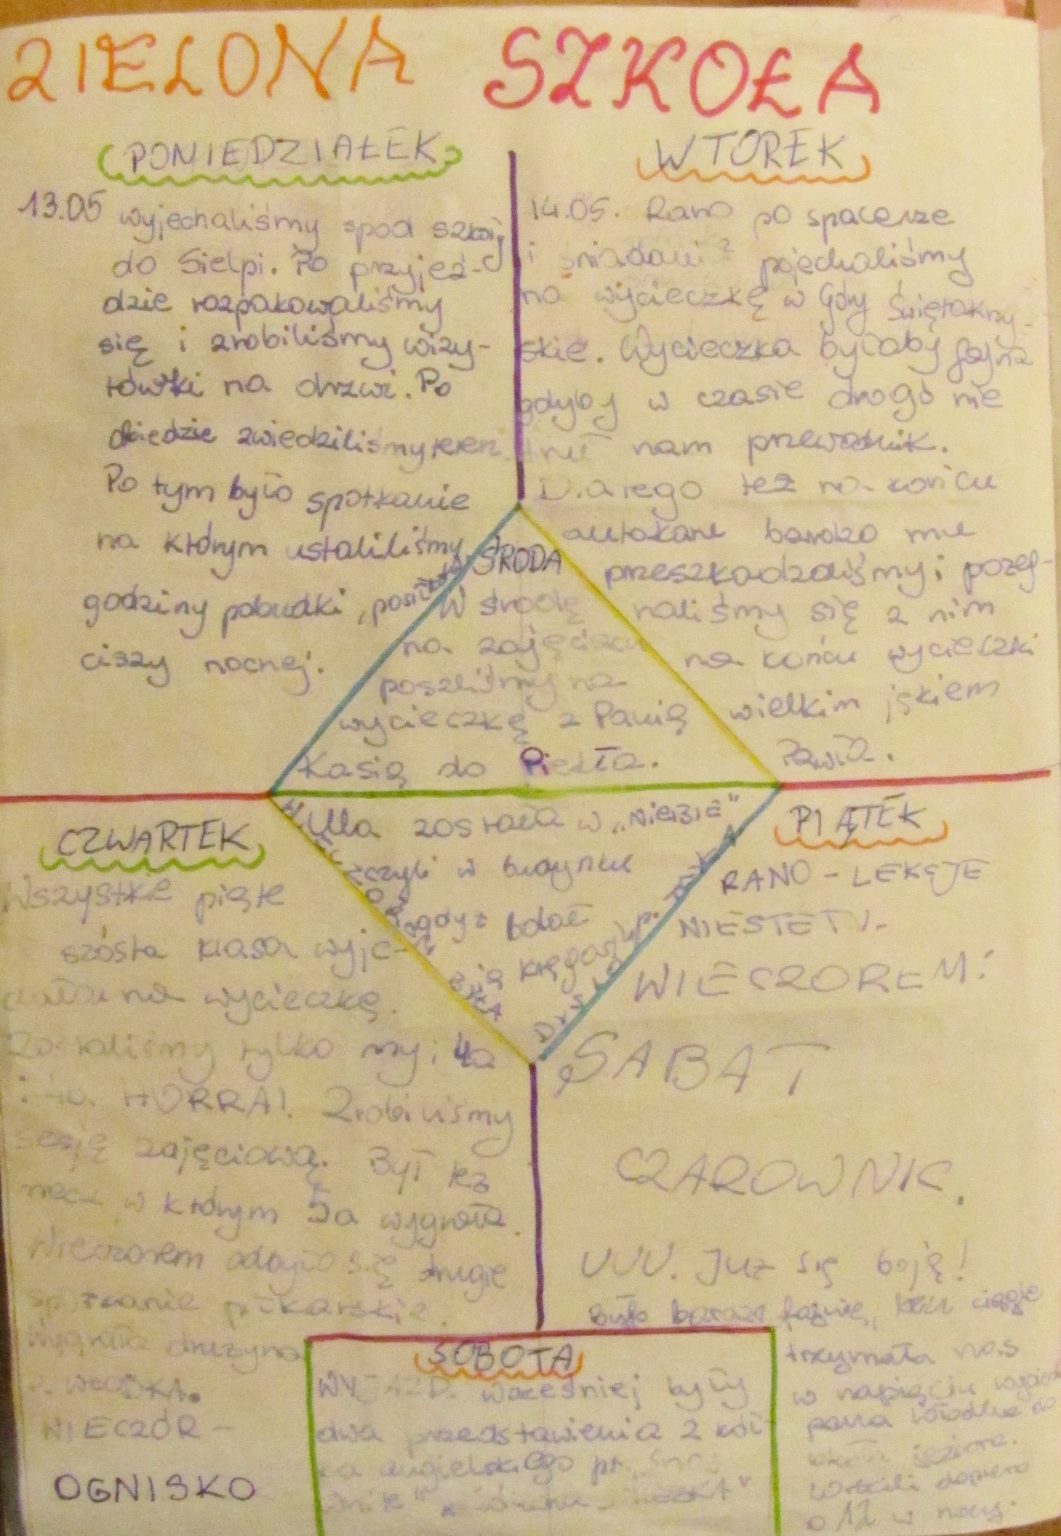 ZIELONA SZKOŁA
PONIEDZIAŁEK
13.05 wyjechaliśmy spod szkoły
do Sielpi. Po przyjeź-
dzie rozpakowaliśmy
się i zrobiliśmy wizy-
tówki na drzwi. Po
obiedzie zwiedziliśmy teren.
Po tym było spotkanie
na którym ustaliliśmy
godziny pobudki, posiłków,
ciszy nocnej.
WTOREK
14.05. Rano po spacerze
i śniadaniu pojechaliśmy
na wycieczkę w Góry Świętokrzy-
skie. Wycieczka byłaby fajna
gdyby w czasie drogi nie
truł nam przewodnik.
Dlatego też na końcu
autokaru bardzo mu
przeszkadzaliśmy i pożeg-
naliśmy się z nim
na końcu wycieczki
wielkim jękiem
Pawła.
ŚRODA
W środę
na zajęciach
poszliśmy na
wycieczkę z Panią
Kasią do Piekła.
Ulla została w „Niebie"
czyli w budynku
gdyż bolał
ją kręgosłup.
CZWARTEK
Wszystkie piąte
szósta klasa wyje-
chała na wycieczkę.
Zostaliśmy tylko my i 4a
i 4b. HURRA!. Zrobiliśmy
sesję zajęciową. Był też
mecz w którym 5a wygrała.
Wieczorem odbyło się drugie
spotkanie piłkarskie.
Wygrała drużyna
p. WŁODKA.
WIECZÓR -
OGNISKO
PIĄTEK
RANO - LEKCJE
NIESTETY.
WIECZOREM:
SABAT
CZAROWNIC.
UUU. Już się boję!
Było bardzo fajnie, ciągle
trzymała nas
w napięciu
pana Włodka do
jeziora.
Wrócili dopiero
o 12 w nocy.
SOBOTA
WYJAZD. Wcześniej były
dwa przedstawienia z kół-
ka angielskiego pt.